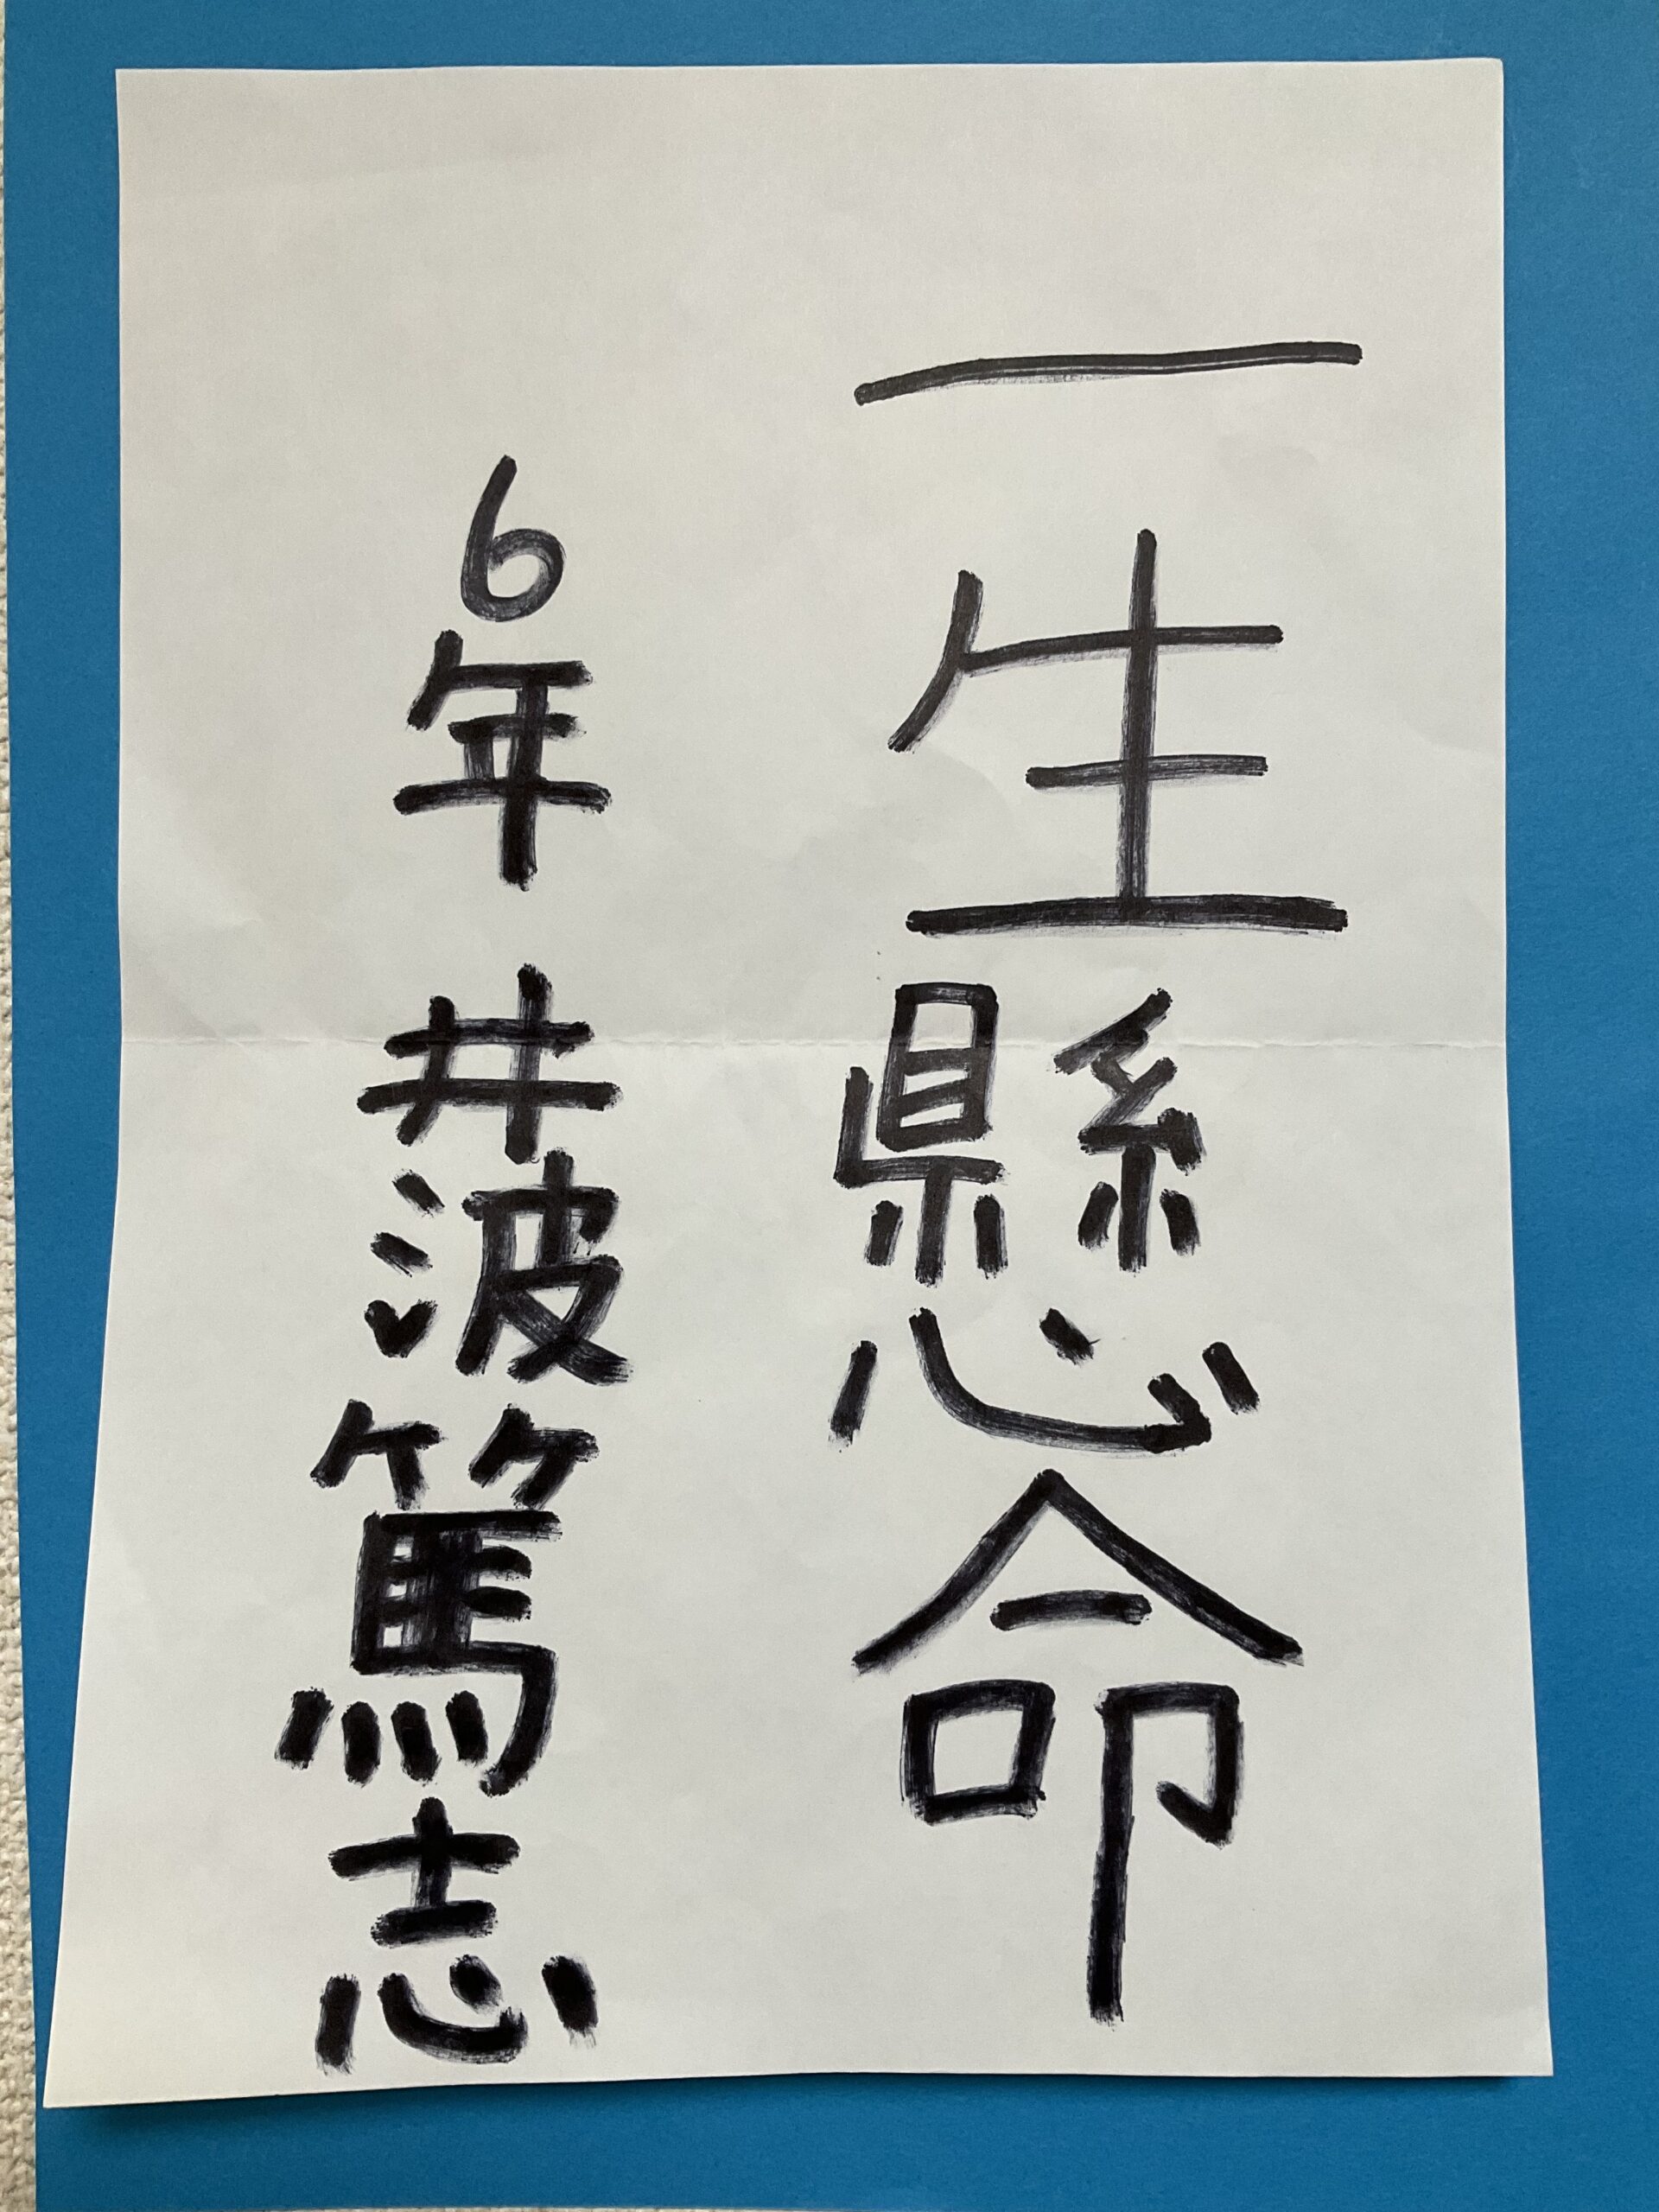 一生懸命
6年 井波篤志